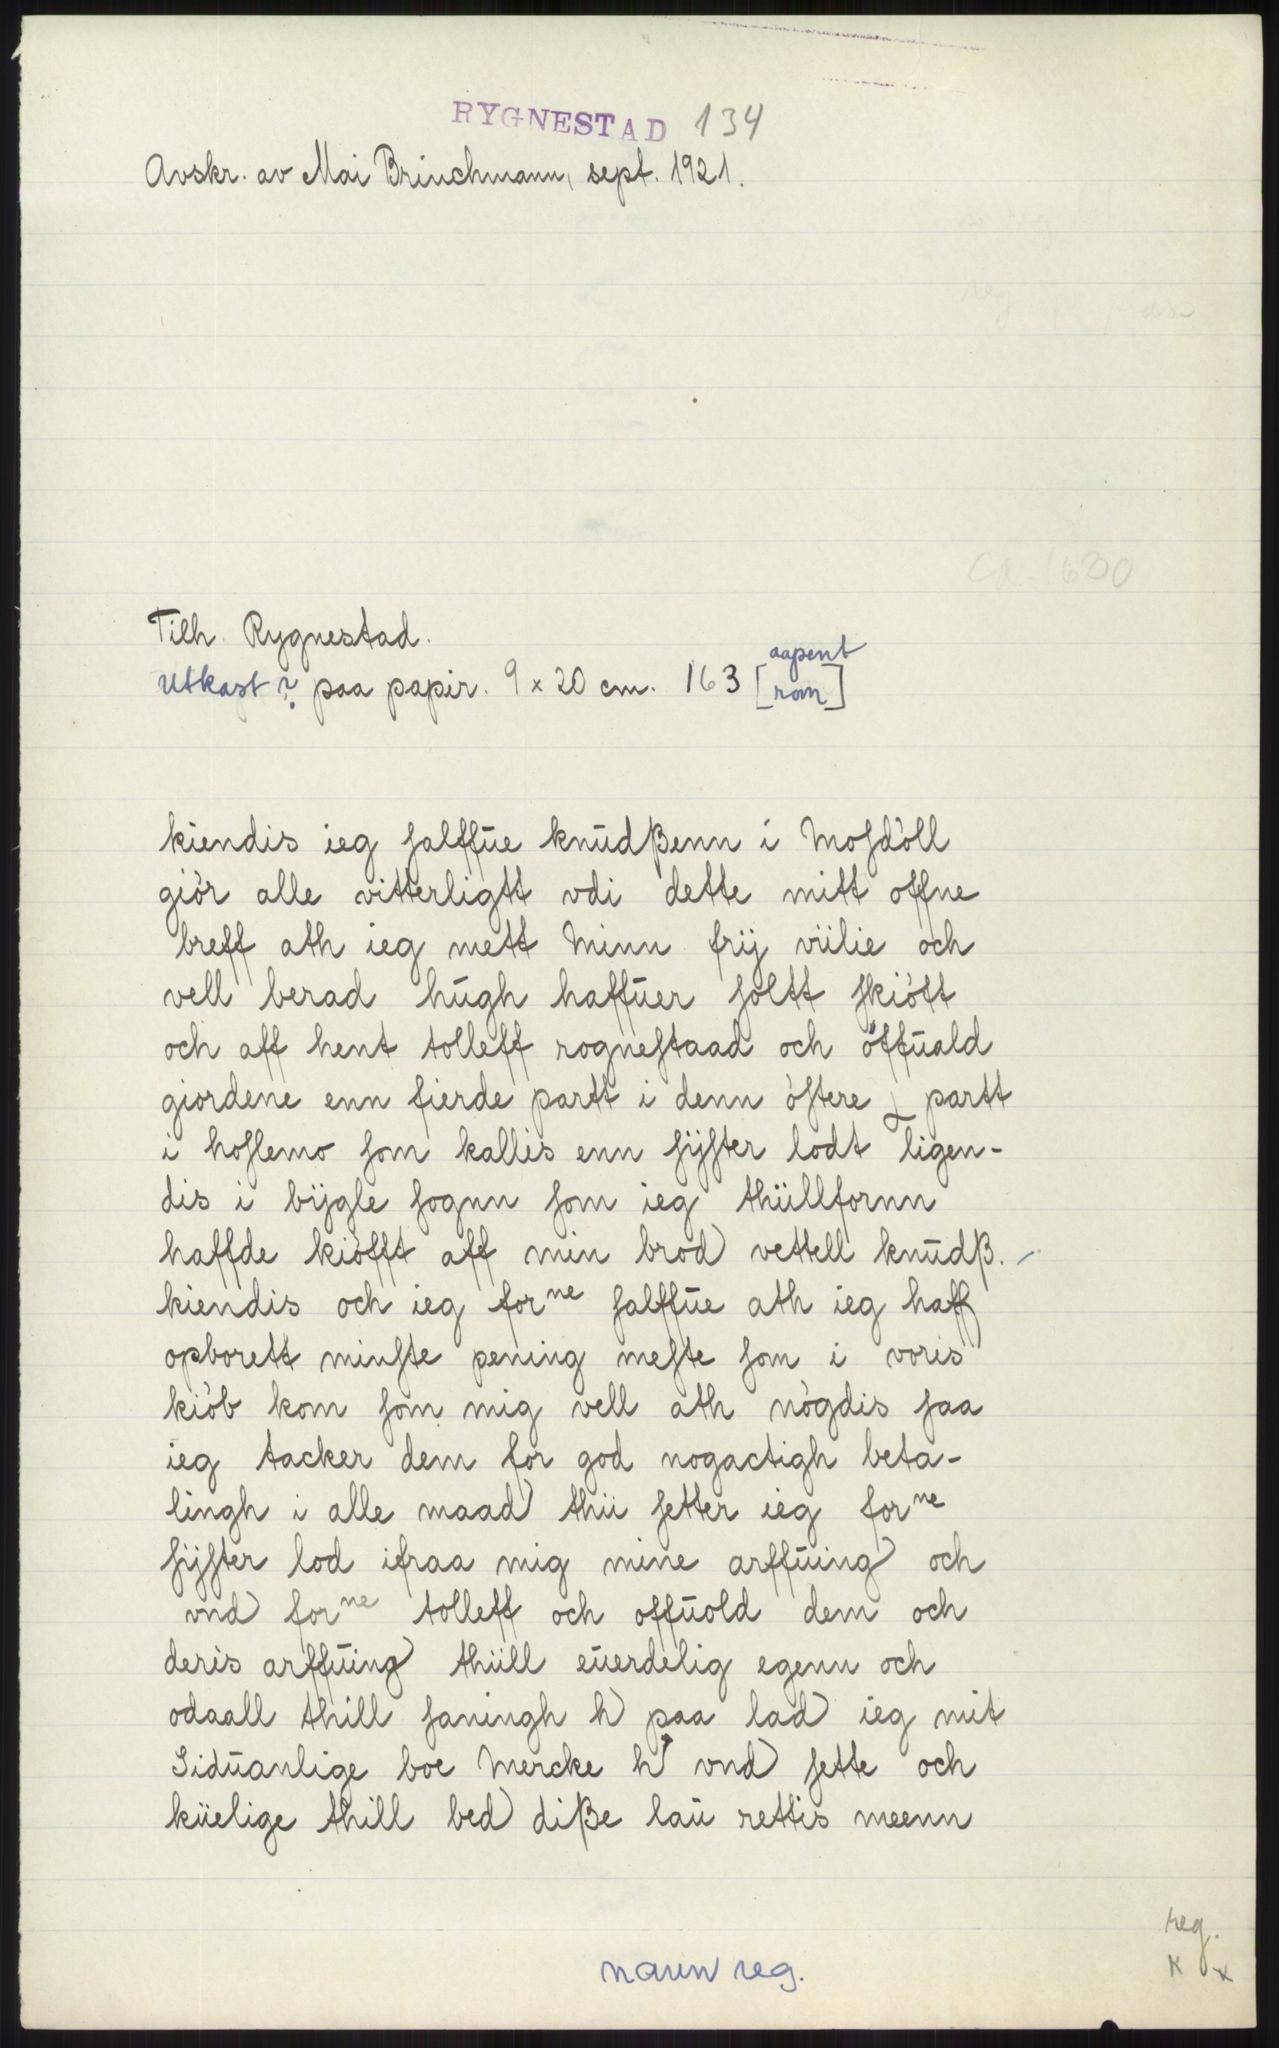 RYGNESTAD 134
Avskr. av Mai Brinchmann, sept. 1921.
ca. 1630
Tilh. Rygnestad.
Utkast? paa papir. 9 x 20 cm. 163 [aapent rom]
kiendis ieg salffue knudßenn i Mosdöll
giör alle vitterligtt vdi dette mitt offne
breff ath ieg mett Minn frij viilie och
vell berad hugh haffuer soltt skiött
och aff hent tolleff rognestaad och öffuald
giordene enn fierde partt i denn östere partt
i hoslemo som kallis enn sÿster lodt ligen-
dis i bÿgle sognn som ieg thüllfornn
haffde kiöfft aff min brod vettell knudß.
kiendis och ieg forne salffue ath ieg haff
opborett minste pening meste som i voris
kiöb kom som mig vell ath nögdis saa
ieg tacker dem for god nogactigh beta-
lingh i alle maad thii setter ieg forne
sÿster lod ifraa mig mine arffuing och
vnd forne tolleff och offuold dem och
deris arffuing thiill euerdelig egenn och
odaall thill saningh h paa lad ieg mit
Siduanlige boe Mercke h vnd sette och
küelige thill bed diße lau rettis meenn
navn reg.
reg.
K x